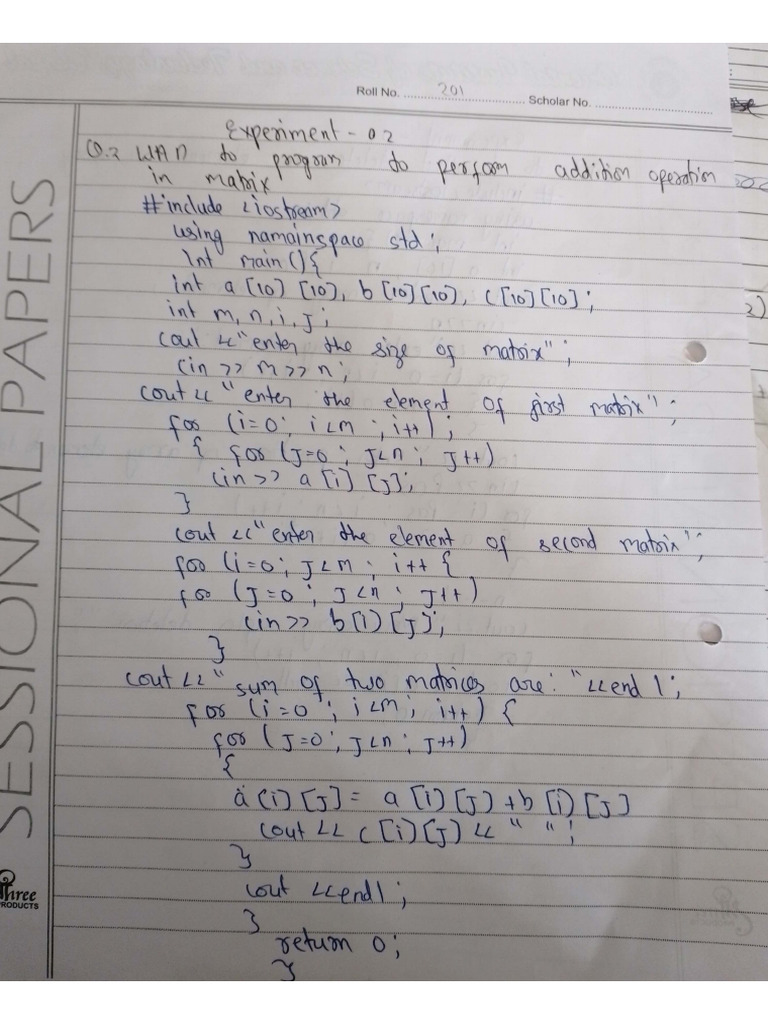 Roll No. 201 Scholar No.
Experiment - 02
Q.2 WAD to program to perform addition operation
in matrix
#include <iostream>
using namainspace std;
int main(){
int a[10][10], b[10][10], c[10][10];
int m, n, i, j;
cout << "enter the size of matrix";
cin >> m >> n;
cout << "enter the element of first matrix";
for (i=0; i<m ; i++);
{ for (J=0 ; J<n ; J++)
cin >> a[i][J];
}
cout << "enter the element of second matrix";
for (i=0; J<m ; i++ {
for (J=0 ; J<n ; J++)
cin >> b[i][J];
}
cout << "sum of two matrices are: "<<endl;
for (i=0 ; i<m ; i++) {
for (J=0; J<n ; J++)
{
a[i][J] = a[i][J] + b[i][J]
cout << c[i][J] << " ";
}
cout <<endl;
}
return 0;
}
SESSIONAL PAPERS
Three
PRODUCTS